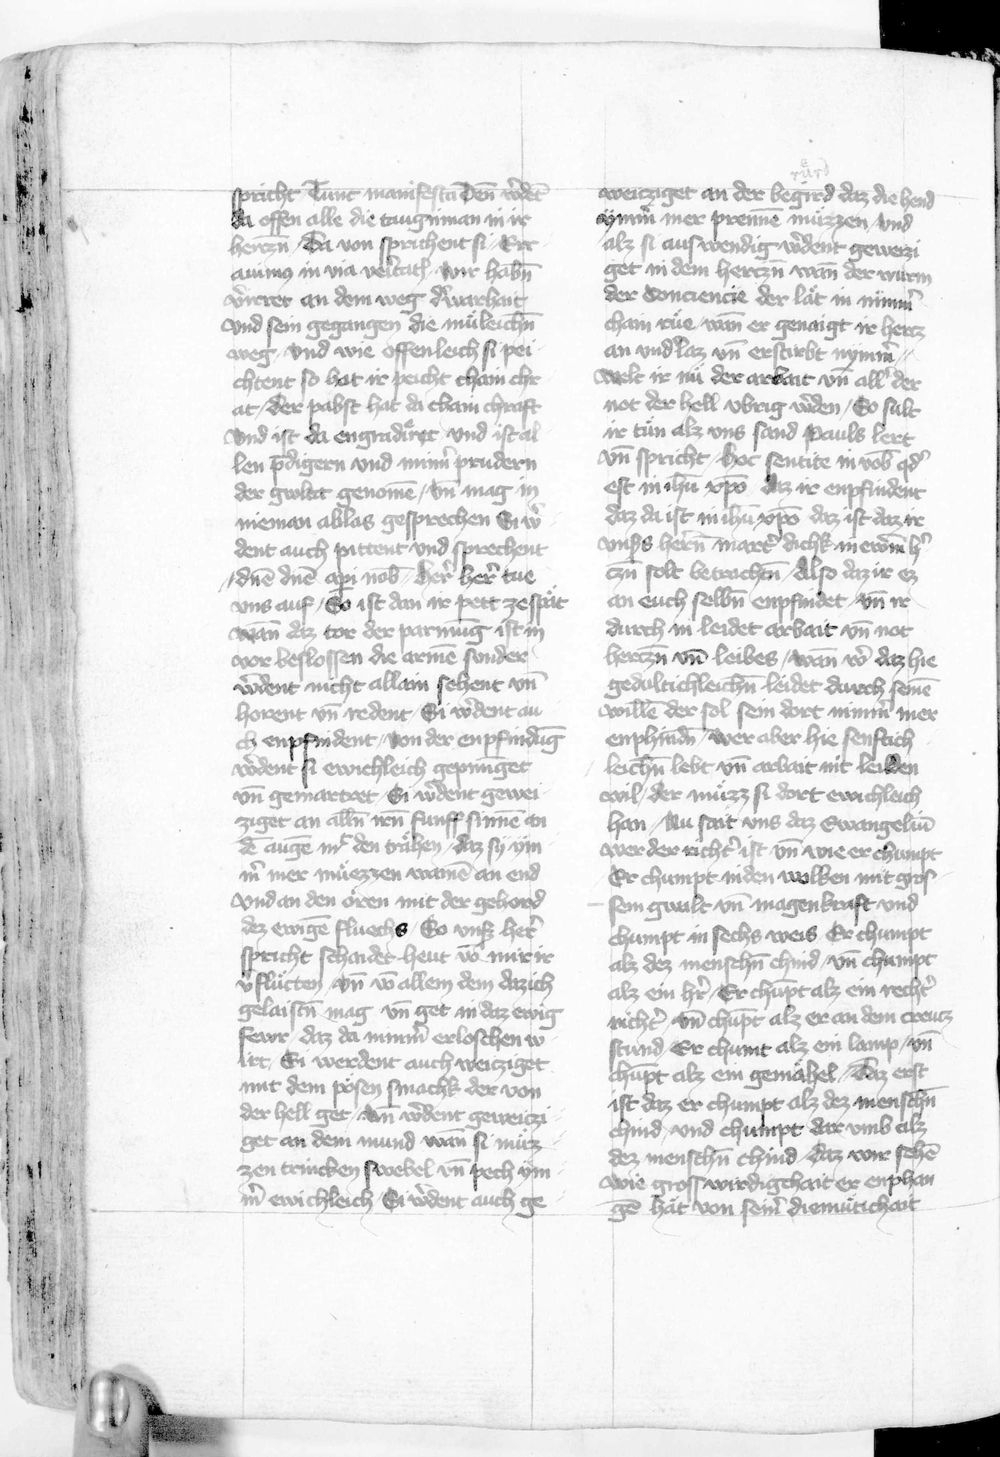 spricht Tunc manifesta Den̄ w̄det
da offen alle die taugnman in ir
herczn̄ / Da von sprichent si / Err
auimus in via veritatis / wir habn̄
v̄irret an dem weg d̄ warhait
vnd sein gegangen die müleichn̄
weg / vnd wie offenleich si pei
chtent so hat ir peicht chain chr
aft / der pabst hat da chain chraft
vnd ist da engradiret vnd ist al
len p̄digern vnd minn̄ prudern
der gwlat genomē / vn̄ mag in
nieman ablas gesprechen Si w̄
dent auch pittent vnd sprechent
/ dn̄e dn̄e api nob̄ / her̄ her̄ tue
vns auf / So ist dan ir pett ze spät
wan̄ daz tor der parmūg ist in
vor beslossen die armē sunder
w̄dent nicht allain sehent vn̄
horent vn̄ redent / Si w̄dent au
ch enpfindent / von der enpfindūg
w̄dent si ewichleich gepiniget
vn̄ gemartret / Si w̄dent gewei
ziget an alln̄ irn̄ funff sinnē an
dē augē mit den trähen / daz sy ym
m̄ mer müezzen wainē an end
vnd an den oren mit der gehord
dez ewigē fluechs / So vnsz her̄
spricht schaidet heut vō mir ir
v̄fluchten / vn̄ vō allem dem daz ich
gelaistn̄ mag vn̄ get in daz ewig
fewr / daz da nimm̄ erloschen w
irt / Si werdent auch weicziget
mit dem pösen smachk der von
der hell get / vn̄ w̄dent geweiczi
get an dem mund wan̄ si müz
zen trincken swebel vn̄ pech ym
m̄ ewichleich / Si w̄dent auch ge
weicziget an der begird daz die hend
ymm̄ mer prennē müzzen / vnd
alz si auswendig w̄dent geweizi
get in dem herczn̄ wan̄ der wurm
der Conciencie der lät in nimm̄
chain rue / wan̄ er genaigt ir hercz
an vnd laz vn̄ erstirbt nymm̄ /
welt ir nü der arbait vn̄ all' der
not der hell vbrig w̄den / So sült
ir tün alz vns sand Pauls lert
vn̄ spricht / hoc sentite in vob̄ qd'
est in ihu xpō daz ir enpfindent
daz da ist in ihu xpō daz ist daz ir
vnsers hern̄ martr̄ dichk in ewrm̄ h'
czn̄ solt betrachtn̄ / Also daz ir ez
an euch selbn̄ enpfindet / vn̄ ir
durch in leidet arbait vn̄ not
herczn̄ vn̄ leibes / wan̄ w̄ daz hie
gedultichleichn̄ leidet durch seinē
willē der sol sein dort nimm̄ mer
enphindn̄ / wer aber hie senftich
leichn̄ lebt vn̄ arbait nit leiden
wil / der müzz si dort ewichleich
han / Nu sait vns daz Ewangeliū
wer der richt' ist vn̄ wie er chumpt
Er chumpt in den wolken mit gros
sem gwalt vn̄ magenkraft vnd
chumpt in sechs weis / Er chumpt
alz dez menschn̄ chind / vn̄ chumpt
alz ein hr̄ / Er chūpt alz ein recht'
richt' / vn̄ chūpt alz er an dem creucz
stund / Er chumt alz ein lamp / vn̄
chūpt alz ein gemähel / Daz erst
ist daz er chumpt alz dez menschn̄
chind / vnd chumpt dar vmb alz
dez menschn̄ chind / daz wir sehē
wie gross wirdigchait er enphan
gē hät von sein̄ diemütichait